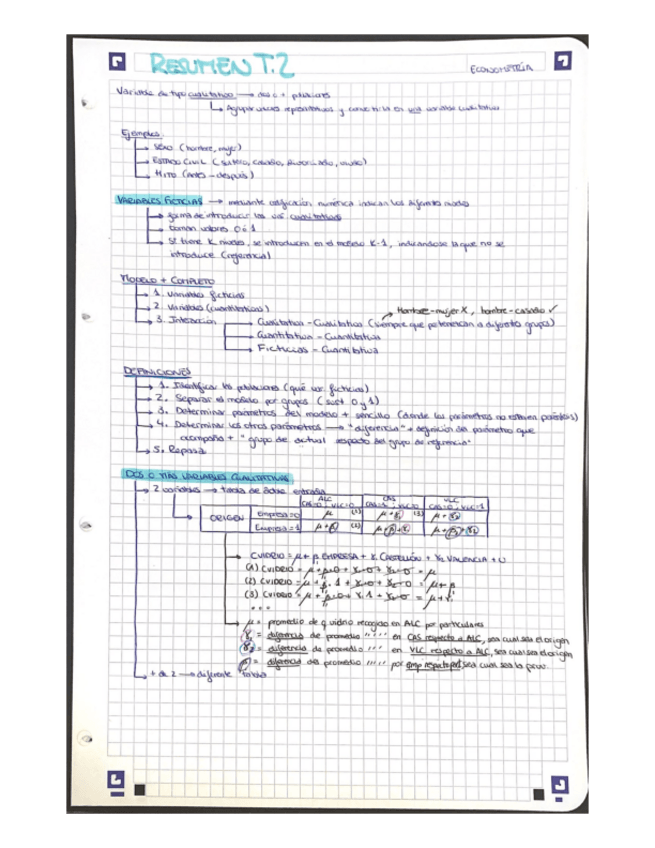 RESUMEN T.2
ECONOMETRÍA
Variables de tipo cualitativo → dos o + poblaciones
↳ Agrupar valores representativos y convertirla en una variable cualitativa
Ejemplos
↳ SEXO (hombre, mujer)
↳ ESTADO CIVIL (soltero, casado, divorciado, viudo)
↳ HITO (antes - después)
VARIABLES FICTICIAS → mediante codificación numérica indican los diferentes niveles
↳ forma de introducir las var cualitativas
↳ toman valores 0 ó 1
↳ Si tiene K niveles, se introducen en el modelo K-1, indicándose la que no se
introduce (referencia)
MODELO + COMPLETO
↳ 1. Variables ficticias
↳ 2. Variables (cuantitativas)
Hombre-mujer X, hombre-casado ✓
↳ 3. Interacción
Cualitativa - Cualitativa (siempre que pertenezcan a diferente grupo)
Cuantitativa - Cuantitativa
Ficticias - Cuantitativa
DEFINICIONES
↳ 1. Identificar las poblaciones (qué var ficticias)
↳ 2. Separar el modelo por grupos (sust 0 y 1)
↳ 3. Determinar parámetros del modelo + sencillo (donde los parámetros no estén
↳ 4. Determinar los otros parámetros → "diferencia" + definición del parámetro que
acompaña + "grupo de actual respecto del grupo de referencia"
↳ 5. Repasar
DOS O MÁS VARIABLES CUALITATIVAS
↳ 2 variables → tabla de doble entrada
ALC CAS VLC
CAS=0, VLC=0 CAS=1, VLC=0 CAS=0, VLC=1
ORIGEN Empresa=0 μ (1) μ+γ₁ (3) μ+γ₂
Empresa=1 μ+β (2) μ+β+γ₁ μ+β+γ₂
CVIDRIO = μ + β EMPRESA + γ₁ CASTELLÓN + γ₂ VALENCIA + U
(1) CVIDRIO = μ + β·0 + γ₁·0 + γ₂·0 = μ
(2) CVIDRIO = μ + β·1 + γ₁·0 + γ₂·0 = μ+β
(3) CVIDRIO = μ + β·0 + γ₁·1 + γ₂·0 = μ+γ₁
...
μ = promedio de q vidrio recogido en ALC por particulares
γ₁ = diferencia de promedio " " " " en CAS respecto a ALC, sea cual sea el origen
γ₂ = diferencia de promedio " " " en VLC respecto a ALC, sea cual sea el origen
β = diferencia del promedio " " " " " por emp respecto part, sea cual sea la prov.
↳ + de 2 → diferente tablas